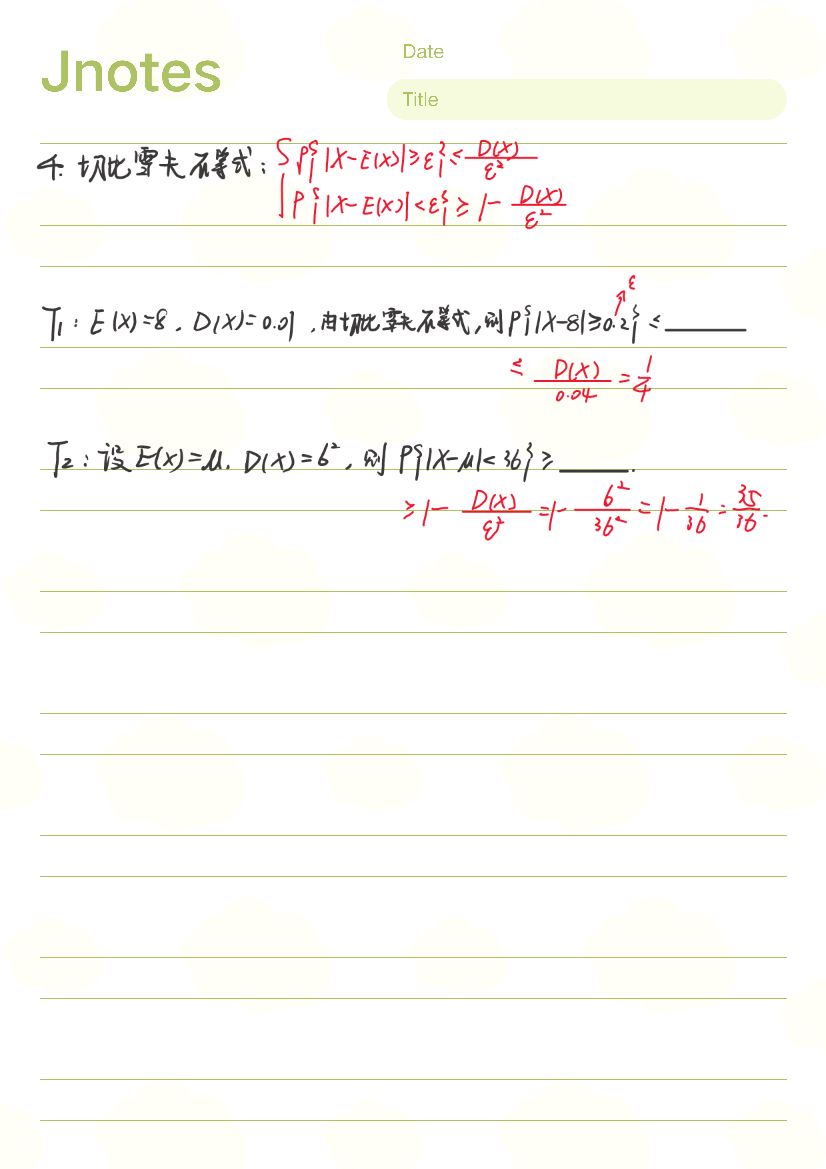 Jnotes
Date
Title
4. 切比雪夫不等式: { P{|X-E(X)|≥ε}≤D(X)/ε²
P{|X-E(X)|<ε}≥1-D(X)/ε²
ε
T1: E(X)=8, D(X)=0.01, 由切比雪夫不等式, 则P{|X-8|≥0.2}≤____
≤ D(X)/0.04 = 1/4
T2: 设E(X)=μ, D(X)=6², 则P{|X-μ|<36}≥____.
≥1-D(X)/ε²=1-6²/36²=1-1/36=35/36.